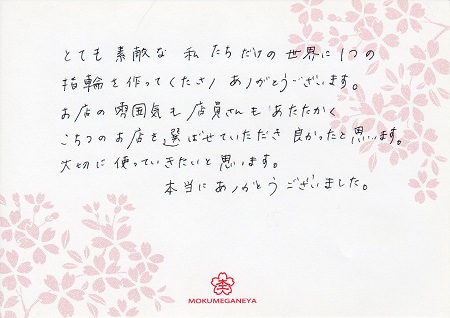 とても素敵な私たちだけの世界に1つの
指輪を作ってくださりありがとうございます。
お店の雰囲気も店員さんもあたたかく
こちらのお店を選ばせていただき良かったと思います。
大切に使っていきたいと思います。
本当にありがとうございました。
MOKUMEGANEYA